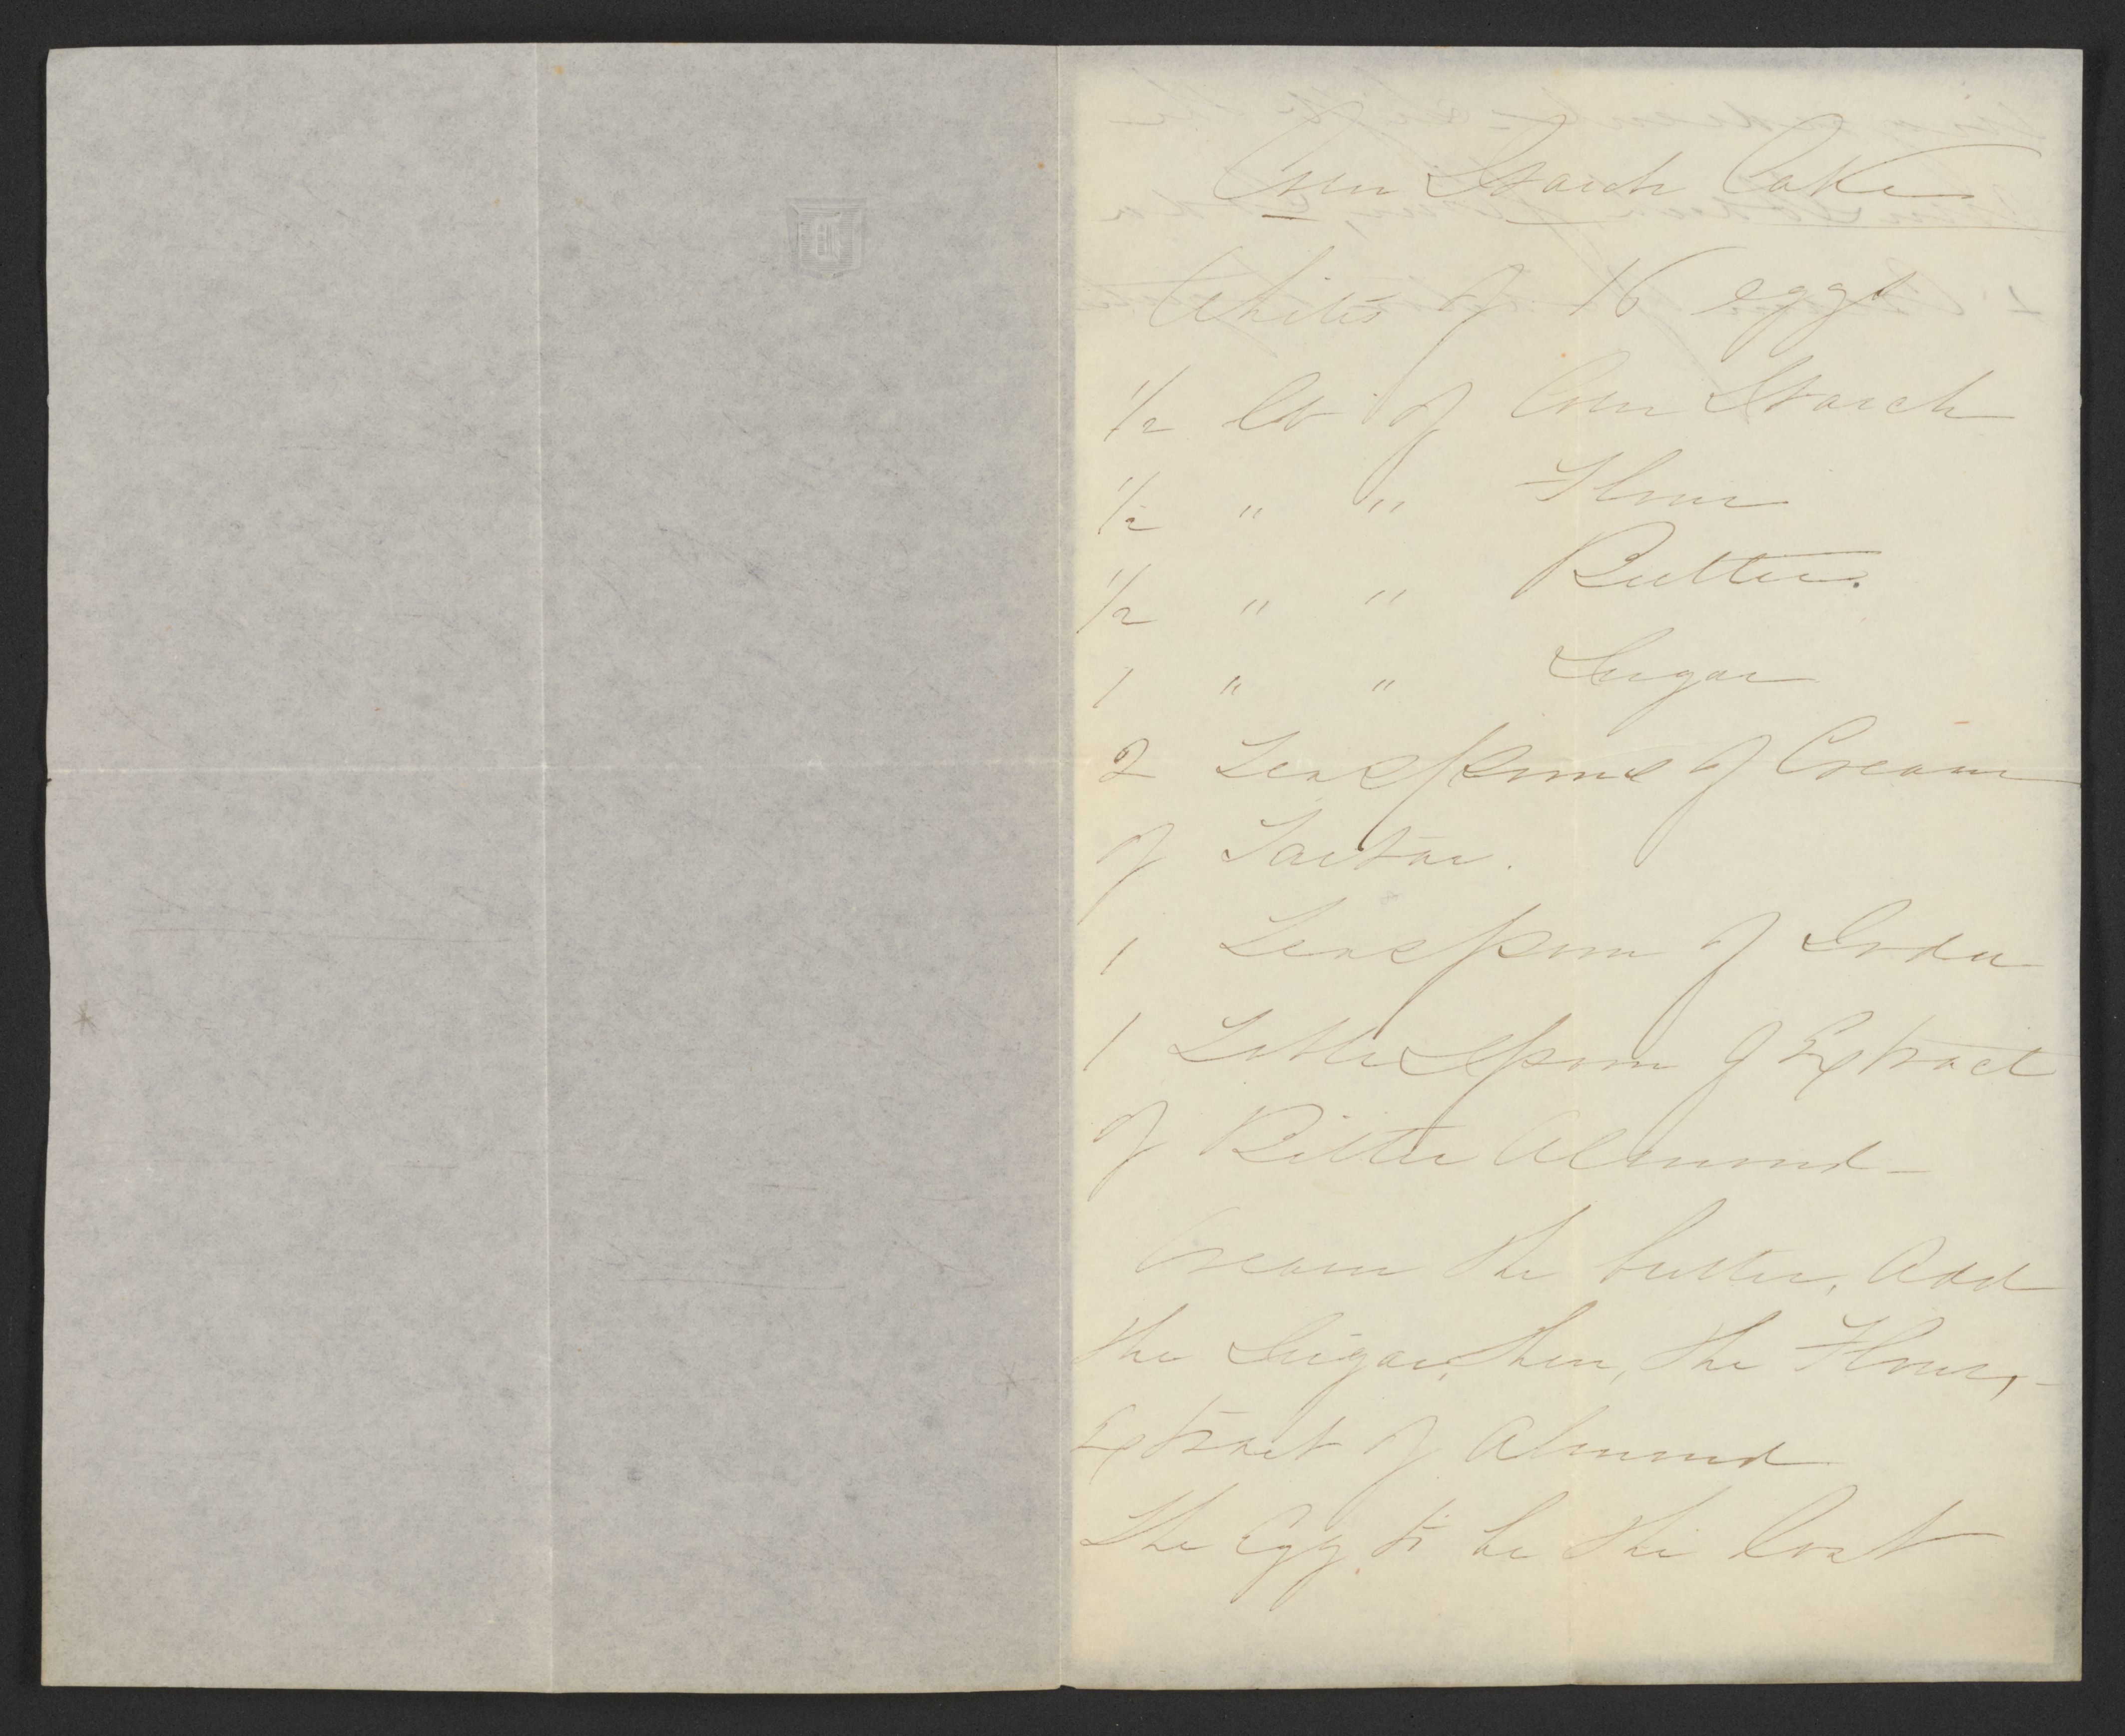 Corn Starch Cake
Whites of 16 eggs
1/2 lb of Corn Starch
1/2 " " Flour
1/2 " " Butter.
1 " " Sugar
2 Teaspoons of Cream
of Tartar.
1 Teaspoon of Soda
1 Table Spoon of Extract
of Bitter Almond -
Cream the butter, add
the Sugar, then, the Flour, -
Extract of Almond
The Egg to be the last